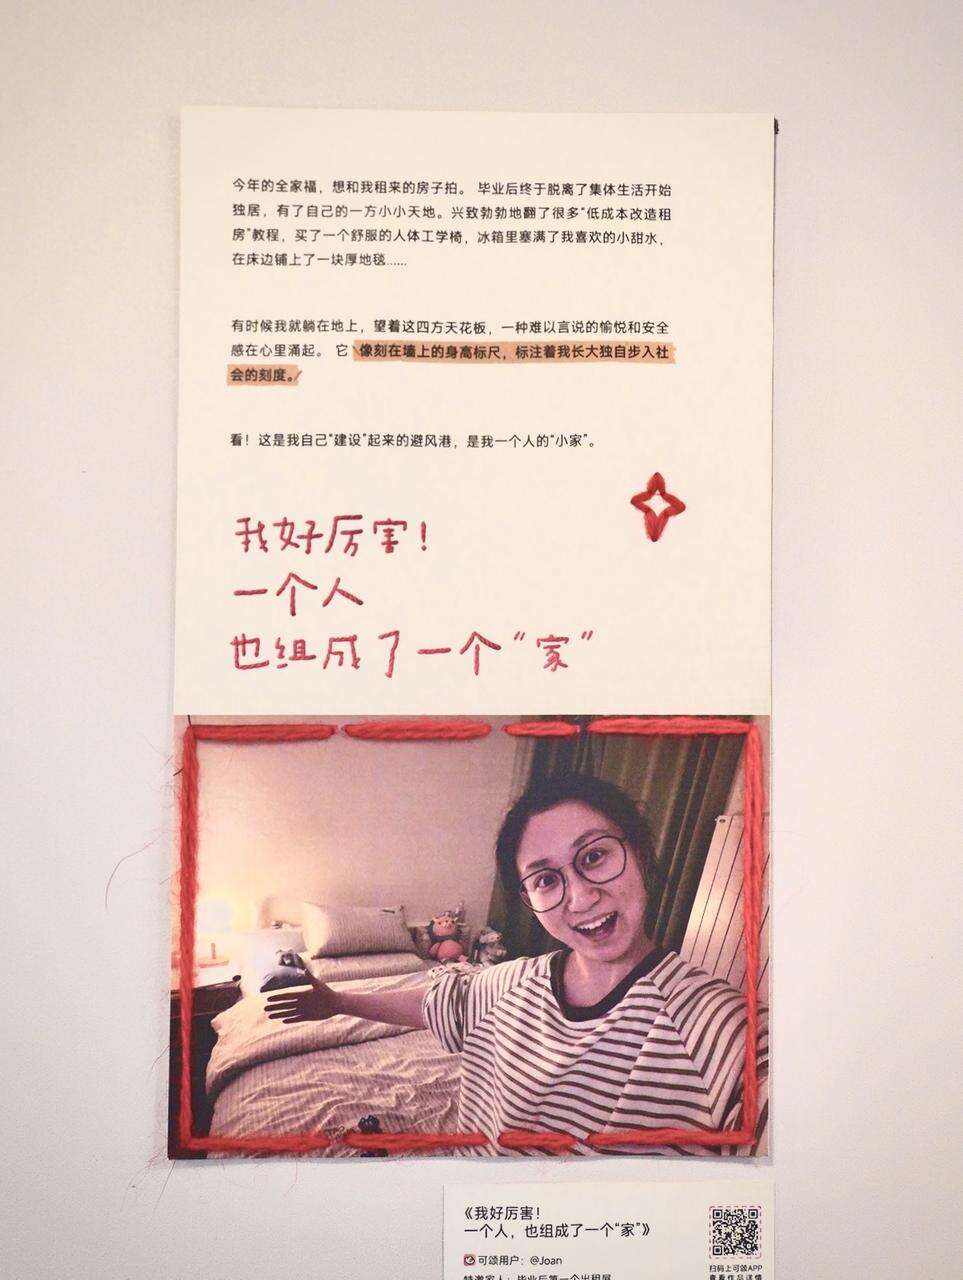 今年的全家福，想和我租来的房子拍。 毕业后终于脱离了集体生活开始
独居，有了自己的一方小小天地。兴致勃勃地翻了很多“低成本改造租
房”教程，买了一个舒服的人体工学椅，冰箱里塞满了我喜欢的小甜水，
在床边铺上了一块厚地毯……
有时候我就躺在地上，望着这四方天花板，一种难以言说的愉悦和安全
感在心里涌起。 它 像刻在墙上的身高标尺，标注着我长大独自步入社
会的刻度。
看！这是我自己“建设”起来的避风港，是我一个人的“小家”。
我好厉害！
一个人
也组成了一个“家”
《我好厉害！
一个人，也组成了一个“家”》
可颂用户：@Joan
扫码上可颂APP
查看作品详情
特邀家人：毕业后第一个出租屋